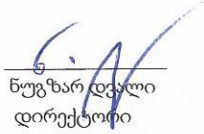 ნუგზარ დვალი
დირექტორი